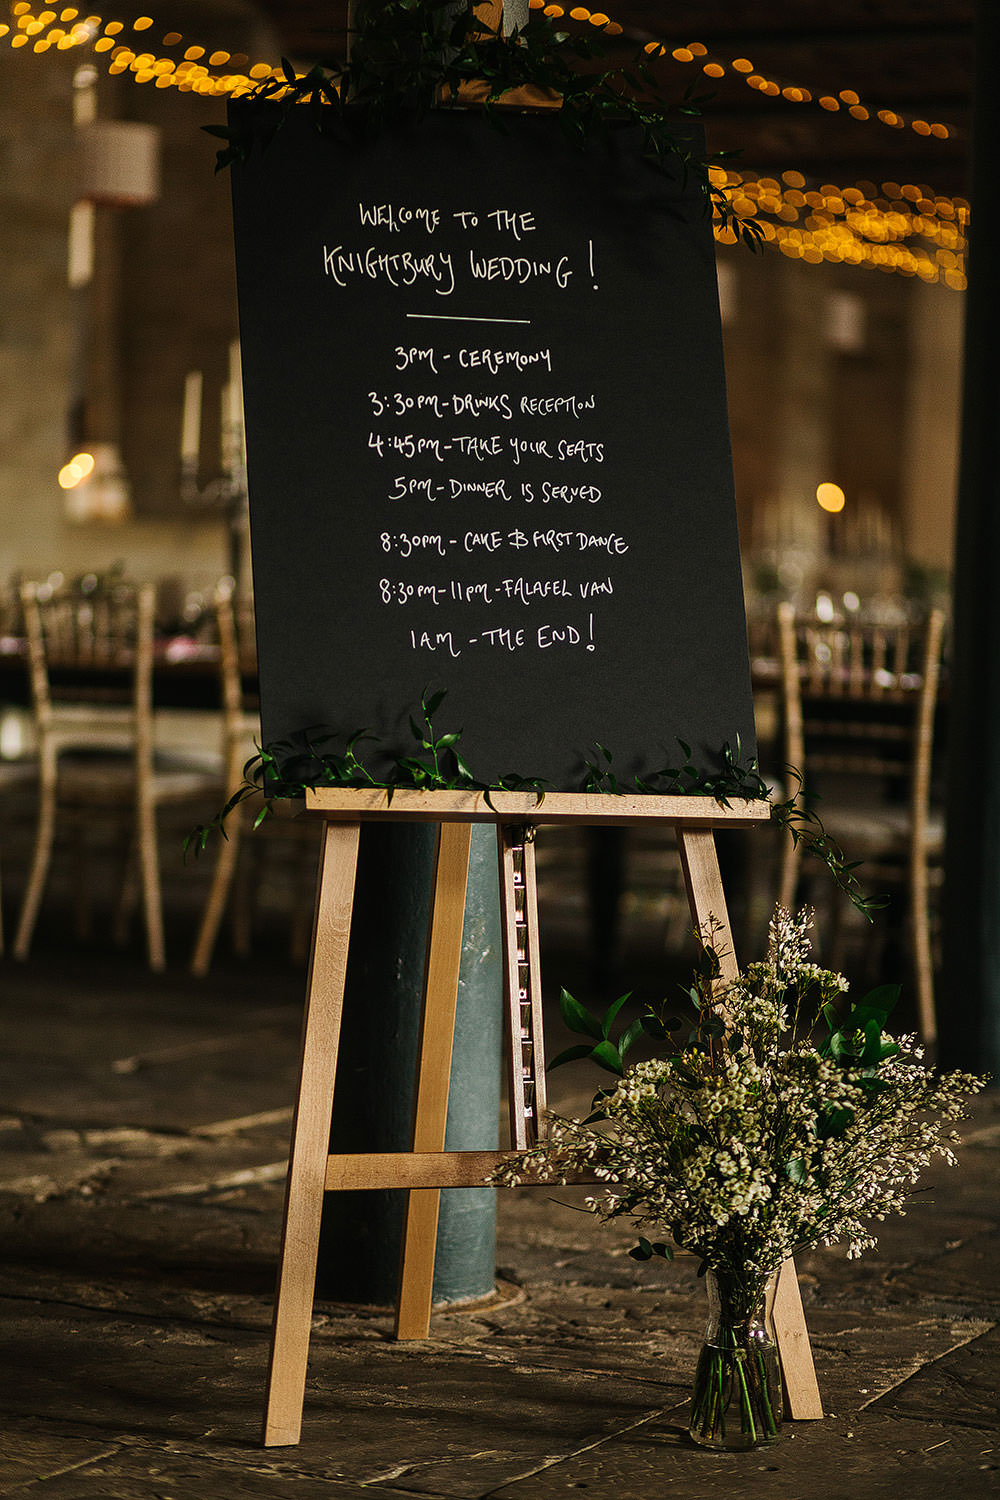 WELCOME TO THE
KNIGHTBURY WEDDING!
3PM - CEREMONY
3:30PM - DRINKS RECEPTION
4:45PM - TAKE YOUR SEATS
5PM - DINNER IS SERVED
8:30PM - CAKE & FIRST DANCE
8:30PM - 11PM - FALAFEL VAN
1AM - THE END!